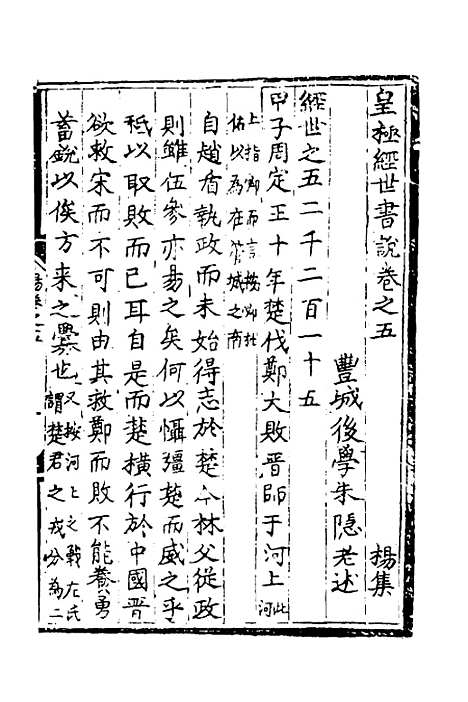 皇極經世書說卷之五 楊集
豐城後學朱隱老述
經世之五二千二百一十五
甲子周定王十年楚伐鄭大敗晉師于河上此河
上指鄭而言按鄭杜
佑以為在管城之南
自趙盾執政而未始得志於楚今林父從政
則雖伍參亦易之矣何以懾彊楚而威之乎
秪以取敗而已耳自是而楚橫行於中國晉
欲救宋而不可則由其救鄭而敗不能養勇
蓄銳以俟方来之釁也又按河上之戰左氏
謂楚君之戎分為二